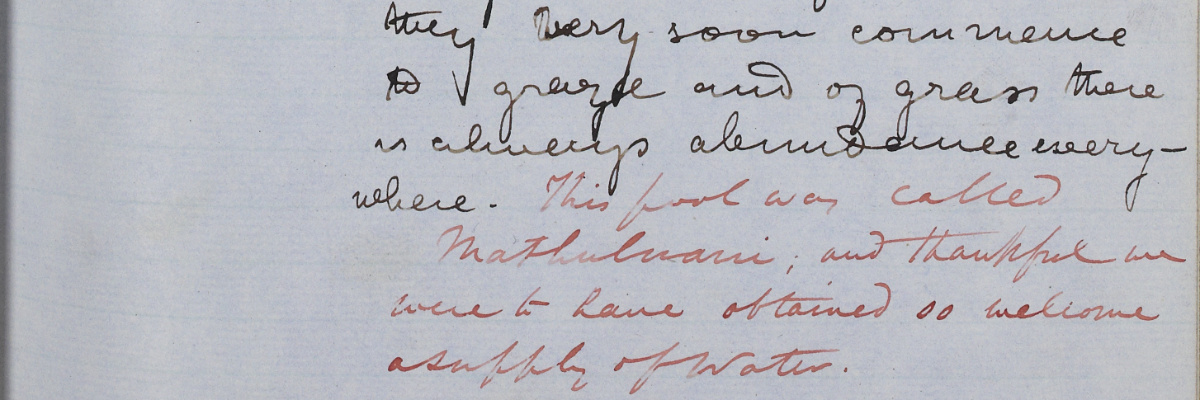 they very soon commence
to graze and of grass there
is always abundance every-
where. This pool was called
Mathuluani; and thankful we
were to have obtained so welcome
a supply of water.